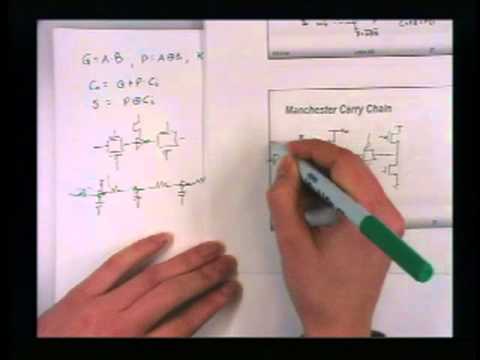 G=A·B, P=A⊕B, K
C₀ = G+P·Cᵢ
S = P⊕Cᵢ
Manchester Carry Chain